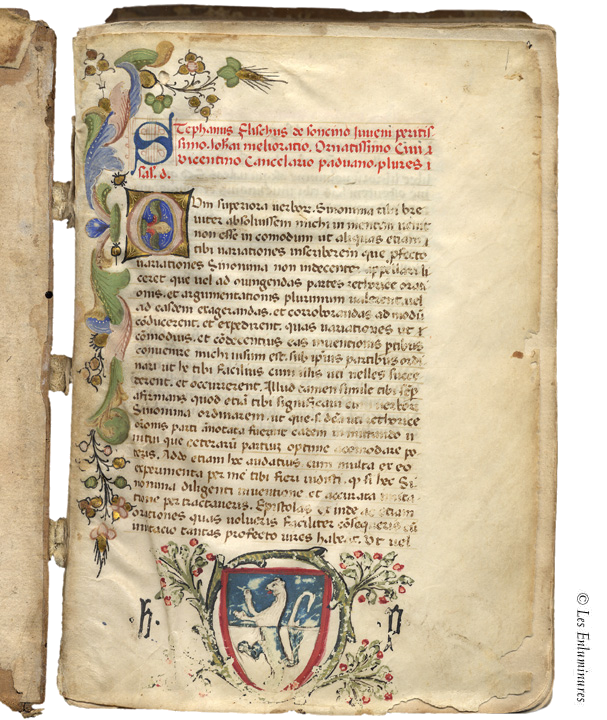 Stephanus Flischus de soncino Juveni peritis
simo. Johãi melioratio. Ornatissimo Civi
Vicentino Cancelario paduano. plures
sal. d.
Cum superiora verbor. Sinonima tibi bre
viter absoluissem michi in mentem venit
non esse in comodum ut aliquas etiam
tibi variationes inscriberem que profecto
variationes Sinonima non indecenter appellari li
ceret que vel ad ouingendas partes rethorice orati
onis. et argumentationis plurimum valerent. vel
ad easdem exagerandas. et corroborandas ad modũ
cõducerent. et expedirent. quas variationes ut
cõmodius. et cõdecentius eas inventionis ptibus
convenire michi visum est. sub ipsius partibus ordi
nari ut he tibi facilius cum illis uti velles succu
rerent. et occurrerent. Illud tamen simile tibi
afirmans quod etiã tibi significavi cum verbor
Sinonima ordinarem. ut que. si. dẽati rethorice
ionis parti ãnotata fuerint eadem in mutando
nitii que ceterarũ partiũ optime acomodare po
teris. Addo etiam hec audatius cum multa ex eo
experimenta per me tibi fieri indisti. qʒ si hec Si
nonima diligenti inventione et accurata
tione per tractaveris. Epistolas et inde etiam
orationes quas volueris faciliter cõsequeris cũ
imitacio tantas profecto vires habeat. Ut vel
© Les Enluminures